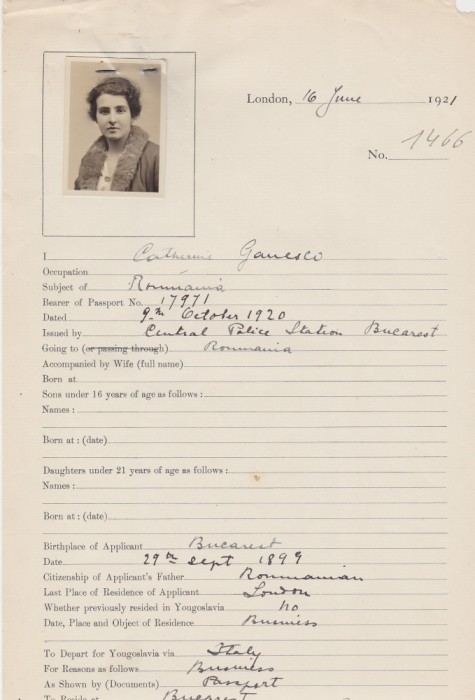 London, 16 June 1921
No. 1466
I Catherine Ganesco
Occupation
Subject of Roumania
Bearer of Passport No. 17971
Dated 9th October 1920
Issued by Central Police Station Bucarest
Going to (or passing through) Roumania
Accompanied by Wife (full name)
Born at
Sons under 16 years of age as follows :
Names :
Born at : (date)
Daughters under 21 years of age as follows :
Names :
Born at : (date)
Birthplace of Applicant Bucarest
Date 29th Sept 1899
Citizenship of Applicant's Father Roumanian
Last Place of Residence of Applicant London
Whether previously resided in Yougoslavia No
Date, Place and Object of Residence Business
To Depart for Yougoslavia via Italy
For Reasons as follows Business
As Shown by (Documents) Passport
To Reside at Bucarest